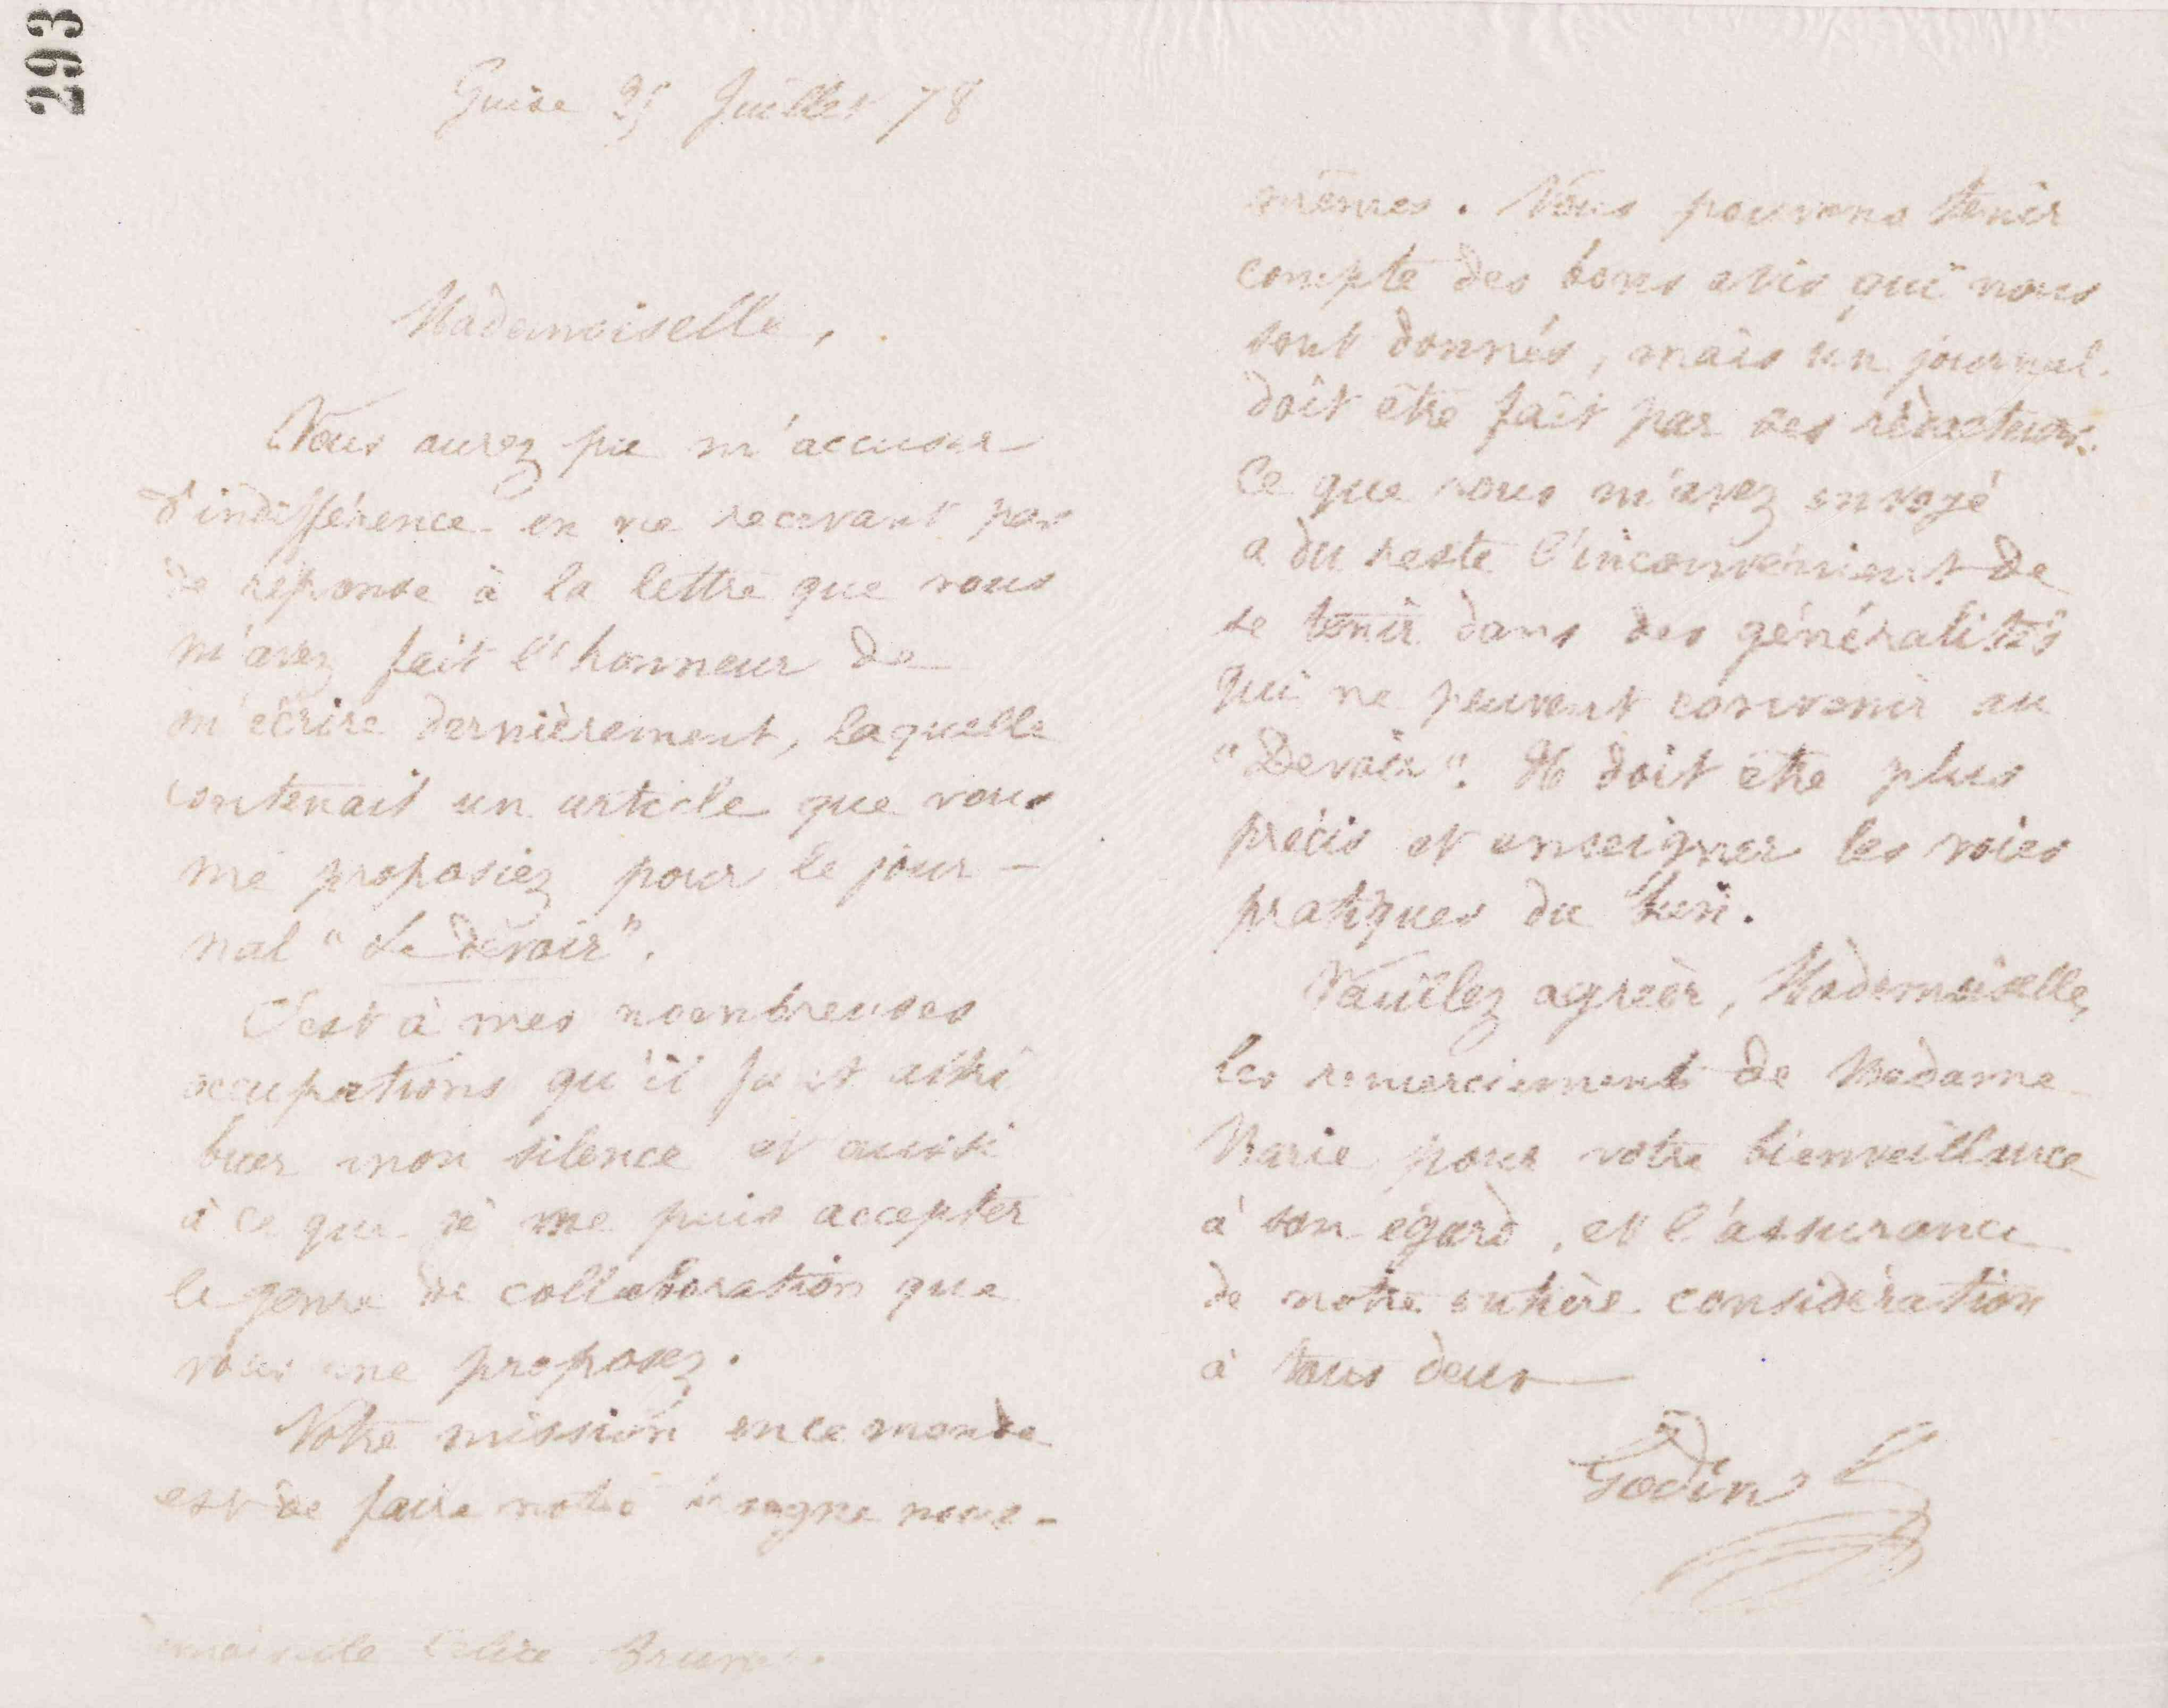 293
Guise 25 Juillet 78
Mademoiselle,
Vous aurez pu m'accuser
d'indifférence en ne recevant pas
de réponse à la lettre que vous
m'avez fait l'honneur de
m'écrire dernièrement, laquelle
contenait un article que vous
me proposiez pour le jour-
nal "Le devoir".
C'est à mes nombreuses
occupations qu'il faut attri
buer mon silence et aussi
à ce que je ne puis accepter
le genre de collaboration que
vous me proposez.
Notre mission en ce monde
est de faire notre besogne nous-
mêmes. Nous pouvons tenir
compte des bons avis qui nous
sont donnés, mais un journal
doit être fait par ses rédacteurs.
Ce que vous m'avez envoyé
a du reste l'inconvénient de
se tenir dans des généralités
qui ne peuvent convenir au
"Devoir". Il doit être plus
précis et enseigner les voies
pratiques du bien.
Veuillez agréer, Mademoiselle,
les remerciements de Madame
Marie pour votre bienveillance
à son égard, et l'assurance
de notre entière considération
à tous deux
Godin